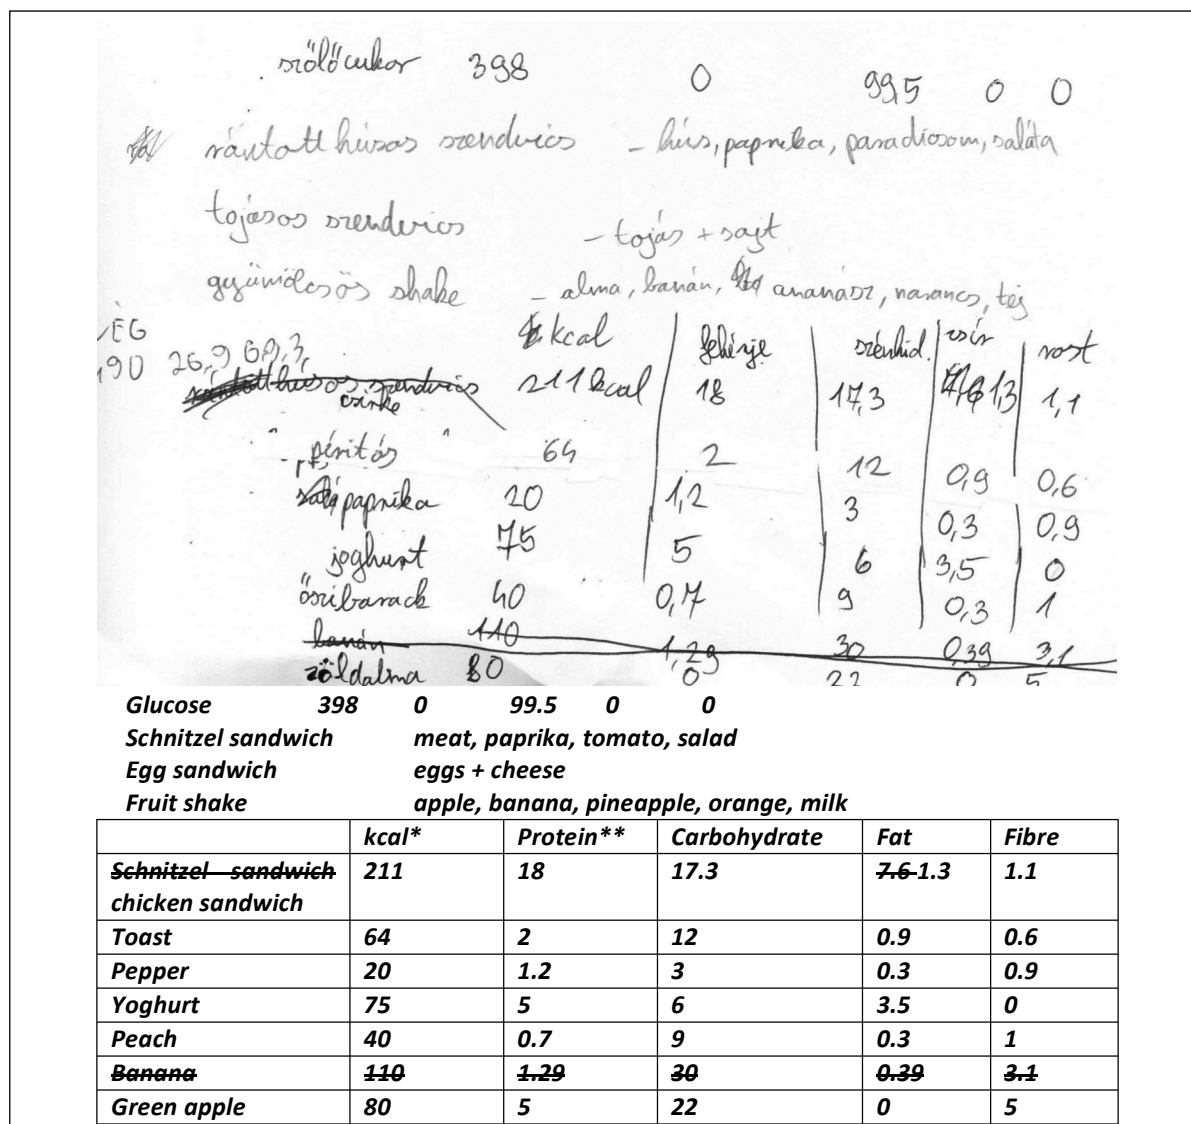 szőlőcukor 398 0 99,5 0 0
rántott húsos szendvics - hús, paprika, paradicsom, saláta
tojásos szendvics - tojás + sajt
gyümölcsös shake - alma, banán, ananász, narancs, tej
kcal fehérje szénhid. zsír rost
90 26,9 60,3,
rántott húsos szendvics 211 kcal 18 17,3 7,6 1,3 1,1
csirke
pirítós 64 2 12 0,9 0,6
paprika 20 1,2 3 0,3 0,9
joghurt 75 5 6 3,5 0
őszibarack 40 0,7 9 0,3 1
banán 110 1,29 30 0,39 3,1
zöldalma 80 0 22 0 5
Glucose 398 0 99.5 0 0
Schnitzel sandwich meat, paprika, tomato, salad
Egg sandwich eggs + cheese
Fruit shake apple, banana, pineapple, orange, milk
kcal* Protein** Carbohydrate Fat Fibre
Schnitzel sandwich 211 18 17.3 7.6 1.3 1.1
chicken sandwich
Toast 64 2 12 0.9 0.6
Pepper 20 1.2 3 0.3 0.9
Yoghurt 75 5 6 3.5 0
Peach 40 0.7 9 0.3 1
Banana 110 1.29 30 0.39 3.1
Green apple 80 5 22 0 5